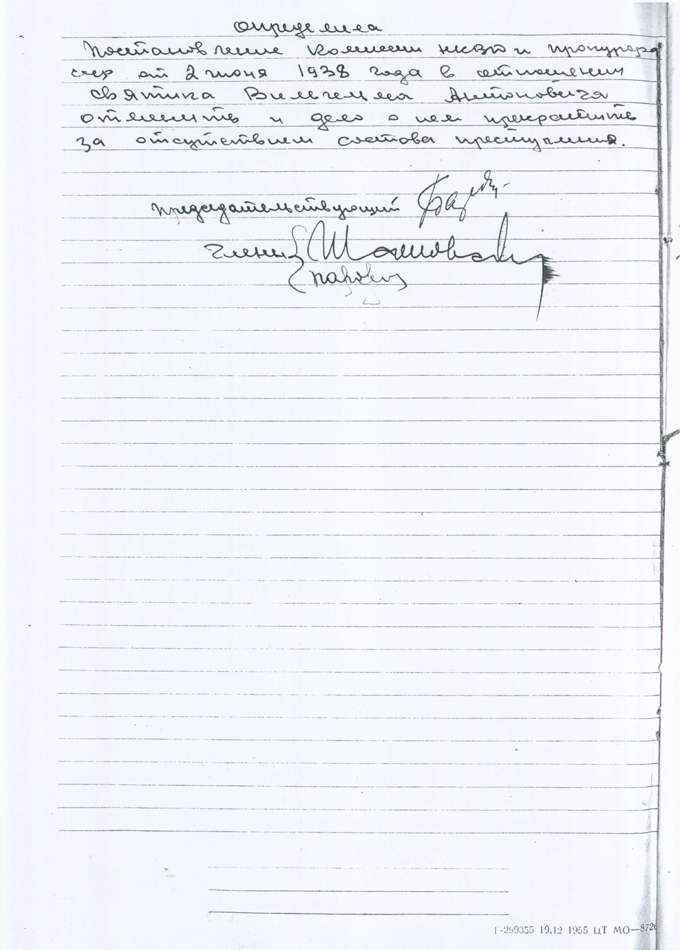 определила
Постановление Комиссии НКВД и прокурора
СССР от 2 июня 1938 года в отношении
Святика Вильгельма Антоновича
отменить и дело о нем прекратить
за отсутствием состава преступления.
Председательствующий
Члены
Г-299355 19.12 1955 ЦТ МО—8726